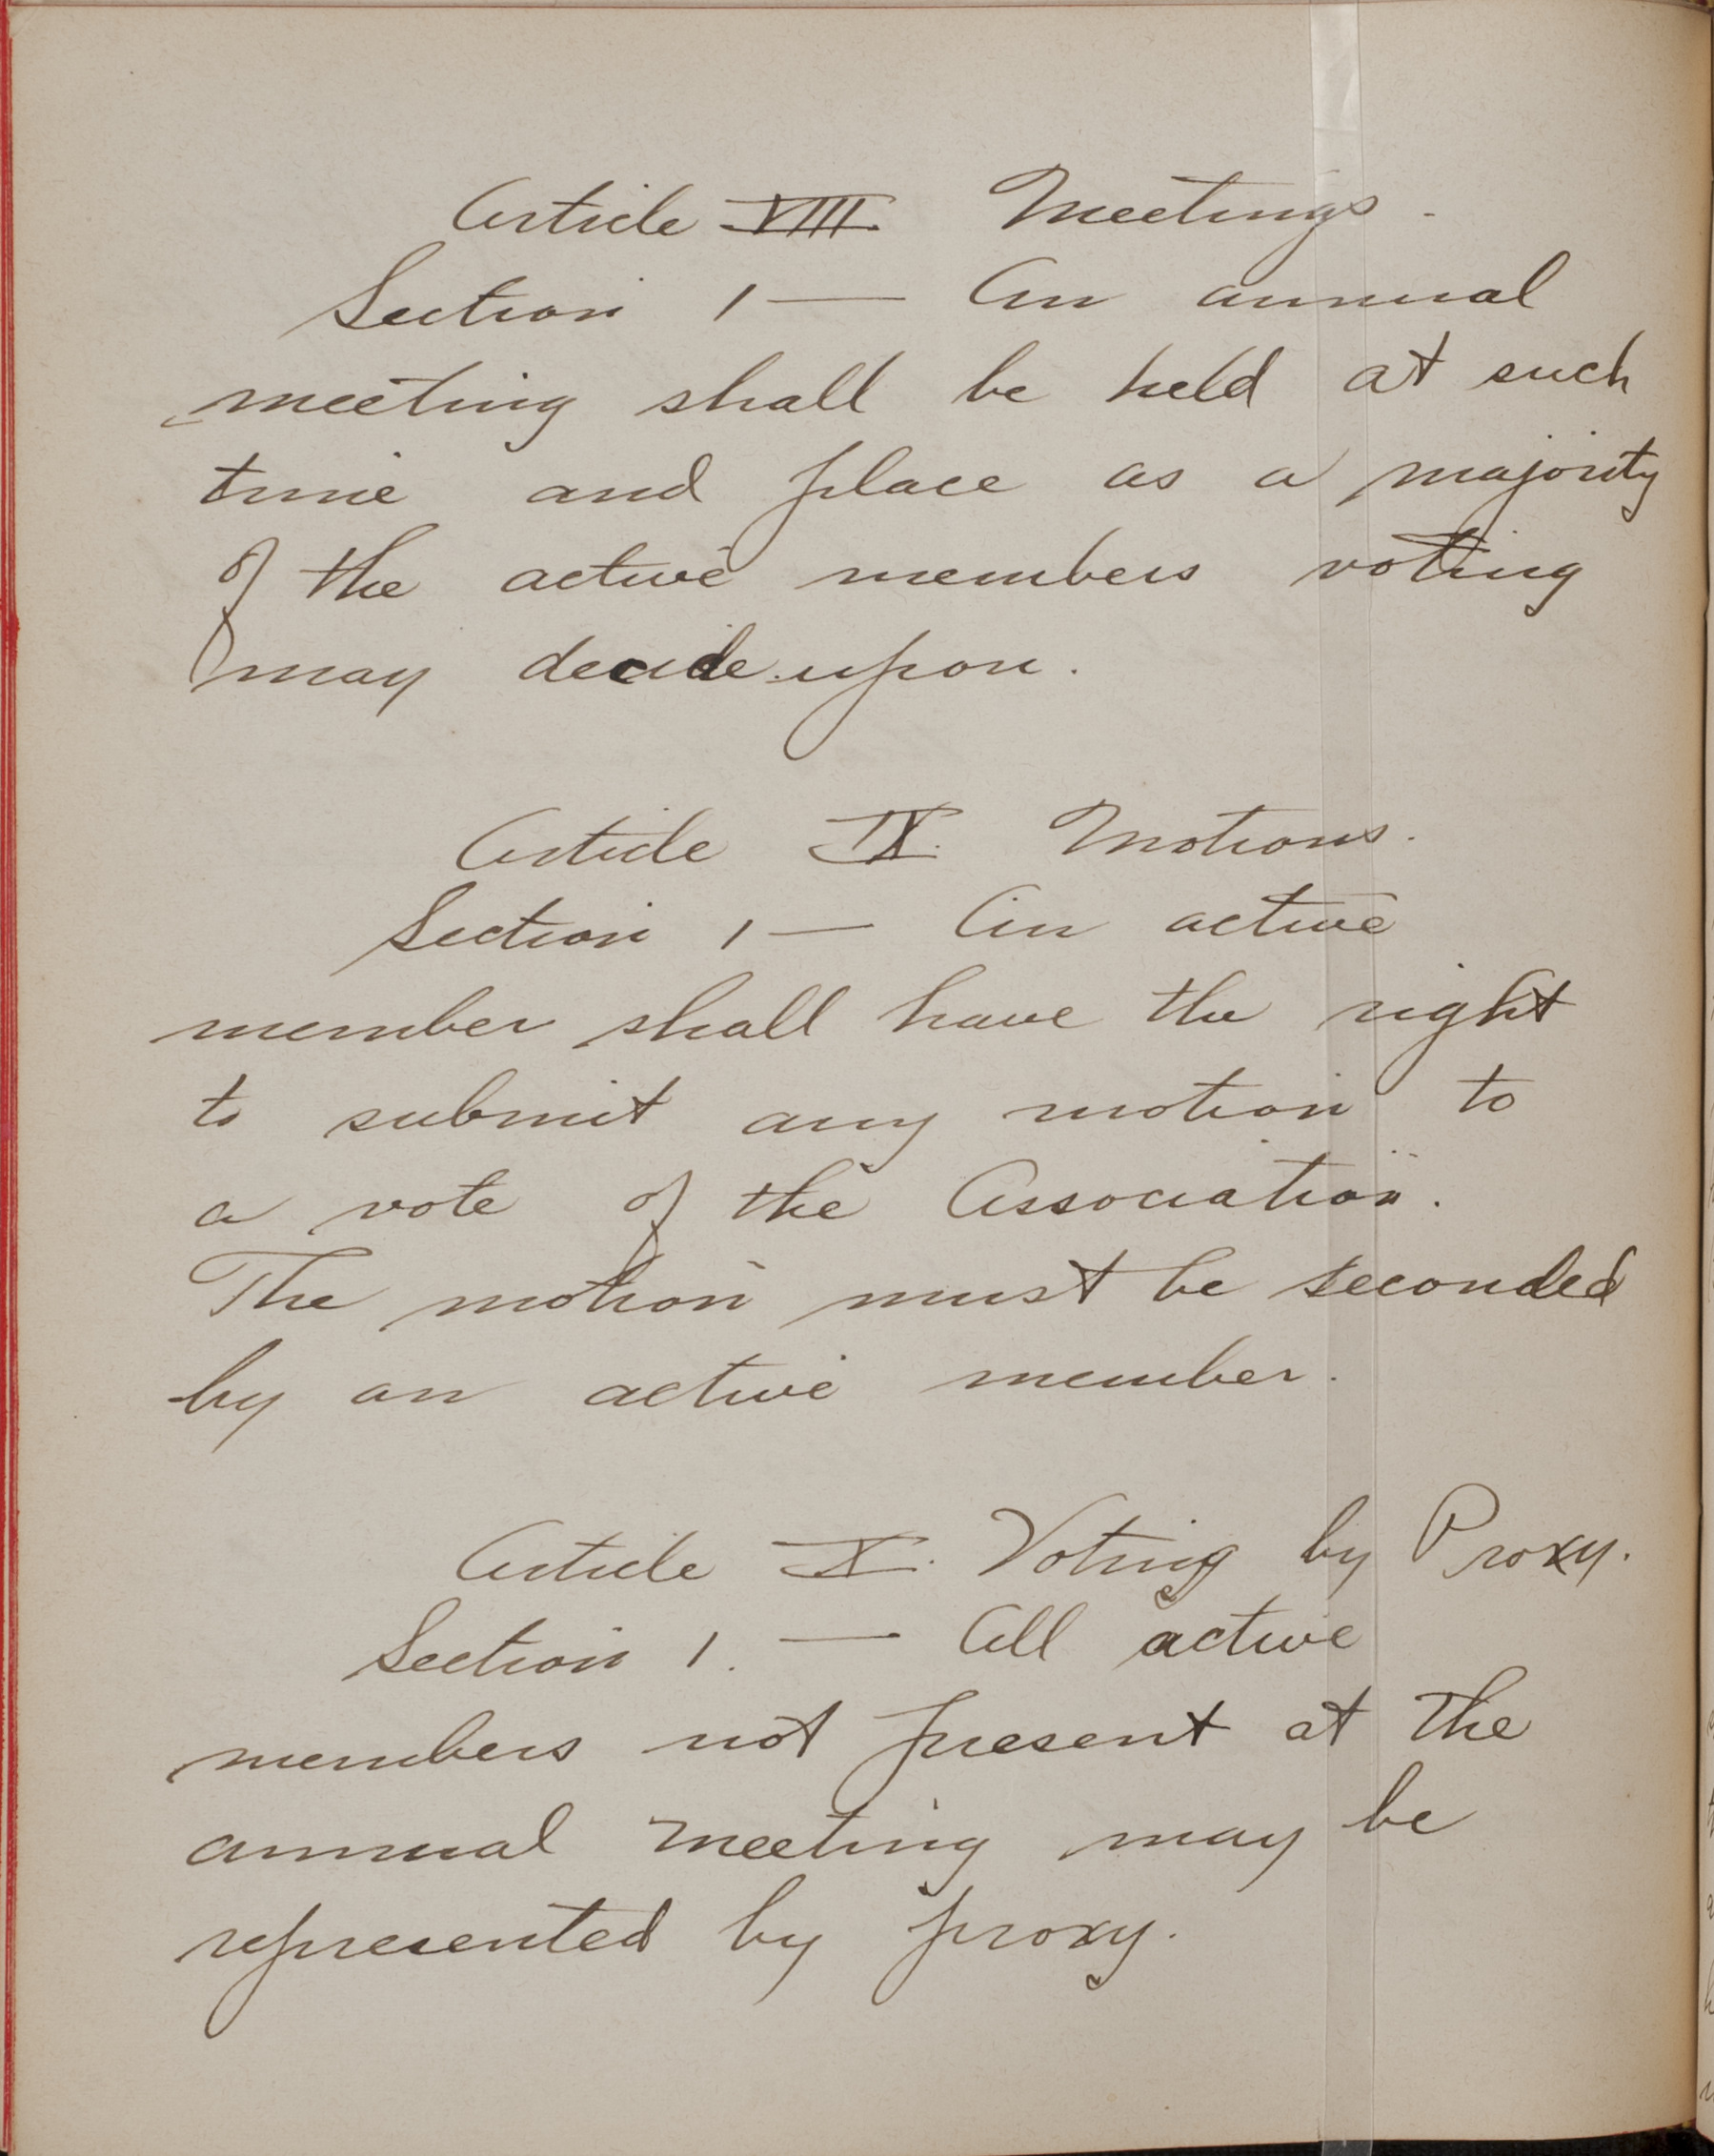 Article VIII. Meetings.
Section 1 — An annual
meeting shall be held at such
time and place as a majority
of the active members voting
may decide upon.
Article IX. Motions.
Section 1 — An active
member shall have the right
to submit any motion to
a vote of the Association.
The motion must be seconded
by an active member.
Article X. Voting by Proxy.
Section 1. — All active
members not present at the
annual meeting may be
represented by proxy.